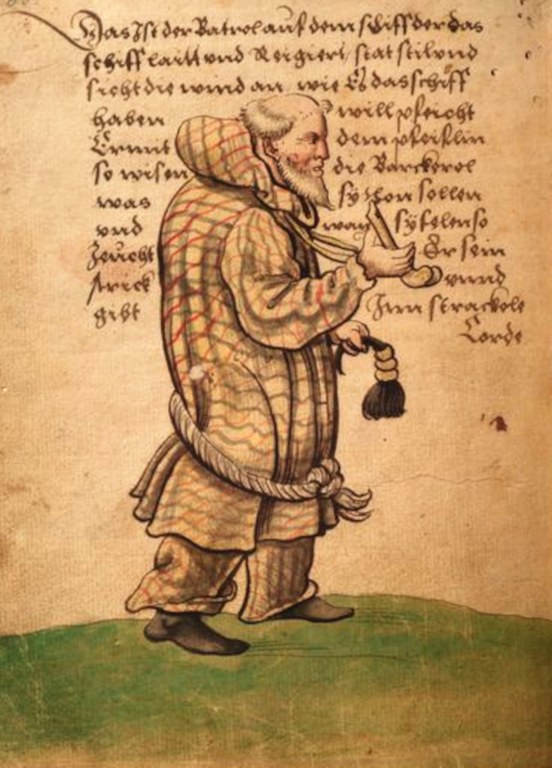 Das Ist der Patrol auf dem schiff der das
schiff laitt vnd Reigiert stat stil vnd
sicht die wind an wie Er das schiff
haben will pfeicht
Er mit dem pfeiflin
so wisen die Barckerol
was sy thon sollen
vnd wan sy so
Zeücht Er sein
strick vnnd
gibt Inn strackole
Corde